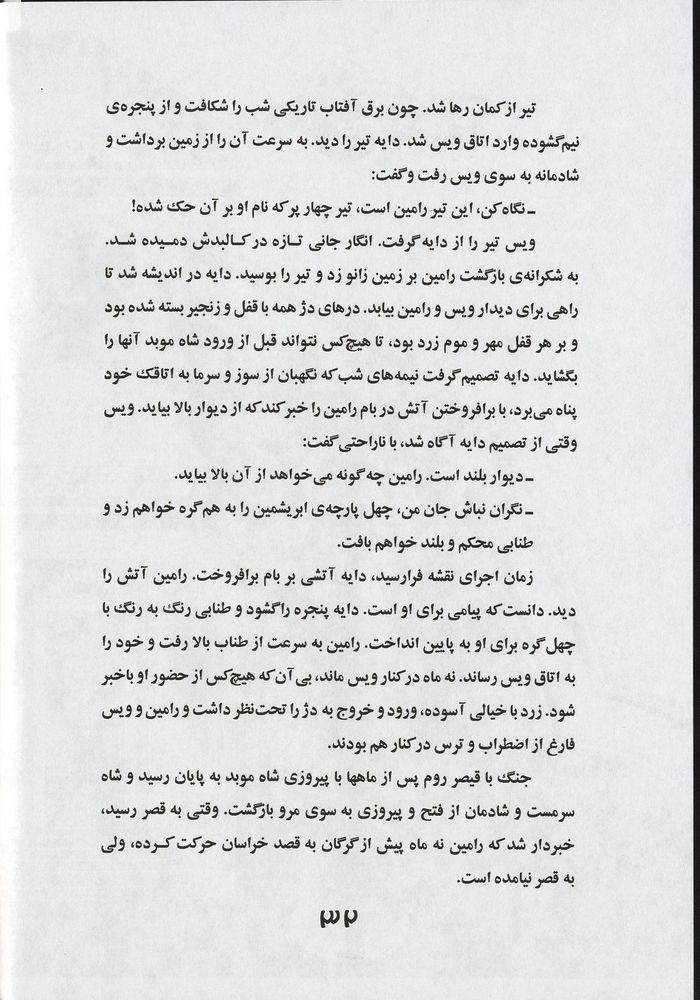 تیر از کمان رها شد. چون برق آفتاب تاریکی شب را شکافت و از پنجره‌ی
نیم‌گشوده وارد اتاق ویس شد. دایه تیر را دید. به سرعت آن را از زمین برداشت و
شادمانه به سوی ویس رفت و گفت:
ـ نگاه کن، این تیر رامین است، تیر چهار پر که نام او بر آن حک شده!
ویس تیر را از دایه گرفت. انگار جانی تازه در کالبدش دمیده شد.
به شکرانه‌ی بازگشت رامین بر زمین زانو زد و تیر را بوسید. دایه در اندیشه شد تا
راهی برای دیدار ویس و رامین بیابد. درهای دژ همه با قفل و زنجیر بسته شده بود
و بر هر قفل مهر و موم زرد بود، تا هیچ‌کس نتواند قبل از ورود شاه موبد آنها را
بگشاید. دایه تصمیم گرفت نیمه‌های شب که نگهبان از سوز و سرما به اتاقک خود
پناه می‌برد، با برافروختن آتش در بام رامین را خبر کند که از دیوار بالا بیاید. ویس
وقتی از تصمیم دایه آگاه شد، با ناراحتی گفت:
ـ دیوار بلند است. رامین چه‌گونه می‌خواهد از آن بالا بیاید.
ـ نگران نباش جان من، چهل پارچه‌ی ابریشمین را به هم گره خواهم زد و
طنابی محکم و بلند خواهم بافت.
زمان اجرای نقشه فرارسید، دایه آتشی بر بام برافروخت. رامین آتش را
دید. دانست که پیامی برای او است. دایه پنجره را گشود و طنابی رنگ به رنگ با
چهل گره برای او به پایین انداخت. رامین به سرعت از طناب بالا رفت و خود را
به اتاق ویس رساند. نه ماه در کنار ویس ماند، بی‌آن‌که هیچ‌کس از حضور او باخبر
شود. زرد با خیالی آسوده، ورود و خروج به دژ را تحت‌نظر داشت و رامین و ویس
فارغ از اضطراب و ترس در کنار هم بودند.
جنگ با قیصر روم پس از ماهها با پیروزی شاه موبد به پایان رسید و شاه
سرمست و شادمان از فتح و پیروزی به سوی مرو بازگشت. وقتی به قصر رسید،
خبردار شد که رامین نه ماه پیش از گرگان به قصد خراسان حرکت کرده، ولی
به قصر نیامده است.
۳۲